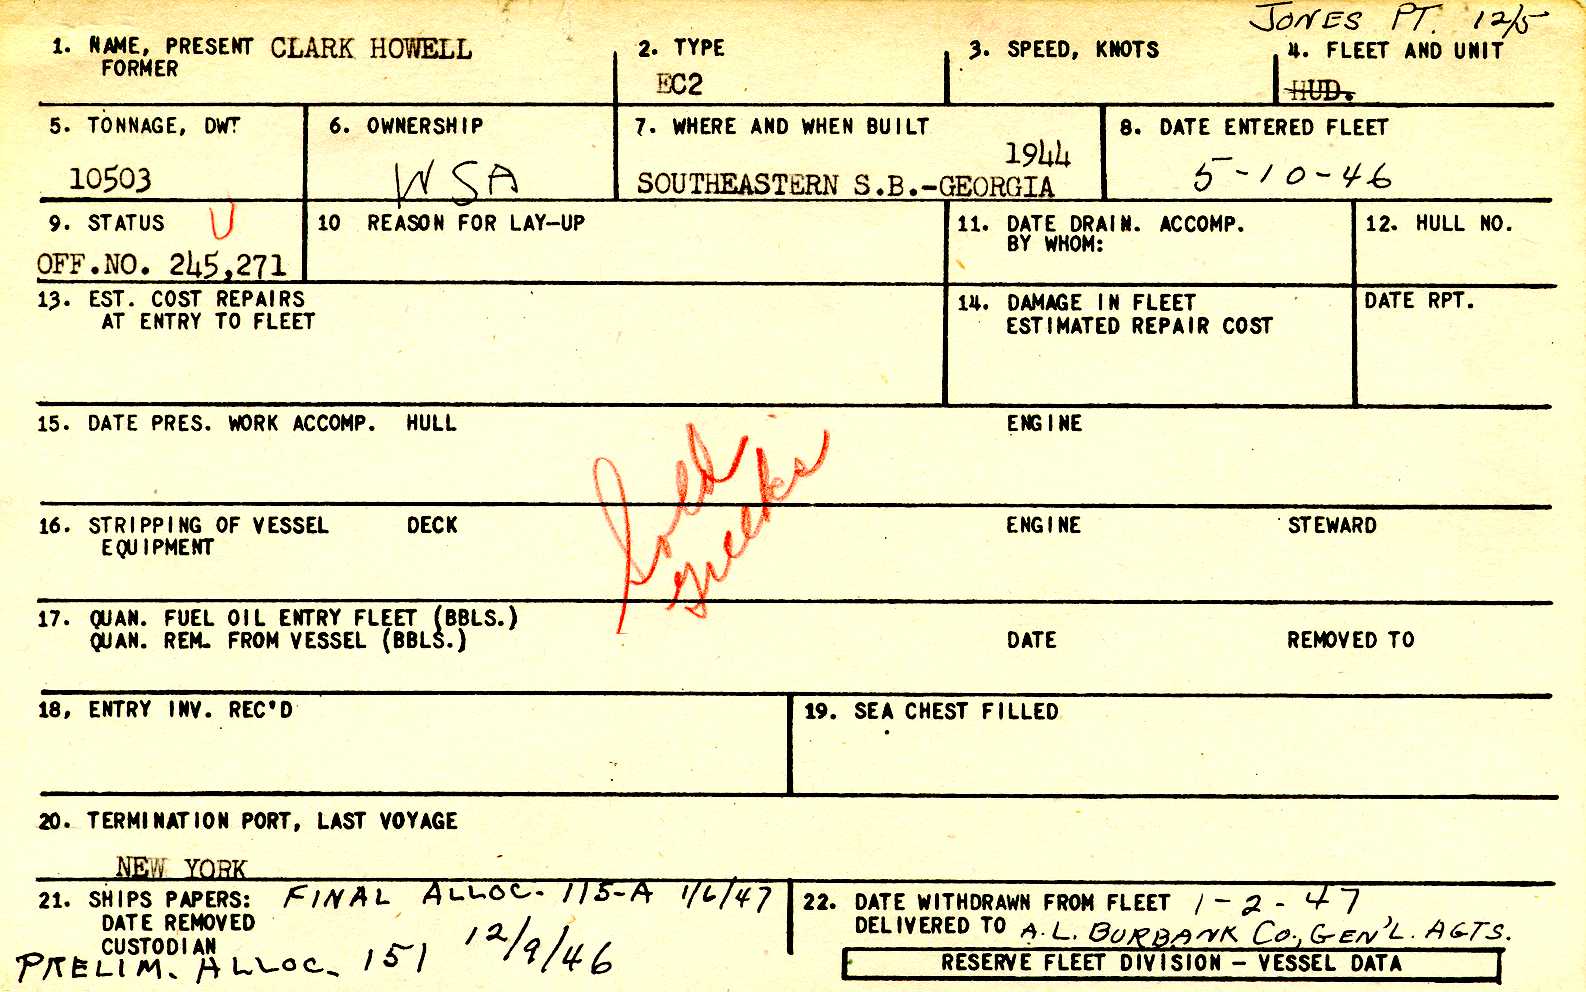 JONES PT. 12/5
1. NAME, PRESENT CLARK HOWELL
FORMER
2. TYPE
EC2
3. SPEED, KNOTS
4. FLEET AND UNIT
HUD.
5. TONNAGE, DWT
10503
6. OWNERSHIP
WSA
7. WHERE AND WHEN BUILT
1944
SOUTHEASTERN S.B.-GEORGIA
8. DATE ENTERED FLEET
5-10-46
9. STATUS U
OFF.NO. 245,271
10 REASON FOR LAY-UP
11. DATE DRAIN. ACCOMP.
BY WHOM:
12. HULL NO.
13. EST. COST REPAIRS
AT ENTRY TO FLEET
14. DAMAGE IN FLEET
ESTIMATED REPAIR COST
DATE RPT.
15. DATE PRES. WORK ACCOMP. HULL
ENGINE
Sold
Greeks
16. STRIPPING OF VESSEL DECK ENGINE STEWARD
EQUIPMENT
17. QUAN. FUEL OIL ENTRY FLEET (BBLS.)
QUAN. REM. FROM VESSEL (BBLS.) DATE REMOVED TO
18, ENTRY INV. REC'D
19. SEA CHEST FILLED
20. TERMINATION PORT, LAST VOYAGE
NEW YORK
21. SHIPS PAPERS: FINAL ALLOC. 115-A 1/6/47
DATE REMOVED
CUSTODIAN
PRELIM. ALLOC. 151 12/9/46
22. DATE WITHDRAWN FROM FLEET 1-2-47
DELIVERED TO A.L. BURBANK CO., GEN'L. AGTS.
RESERVE FLEET DIVISION - VESSEL DATA